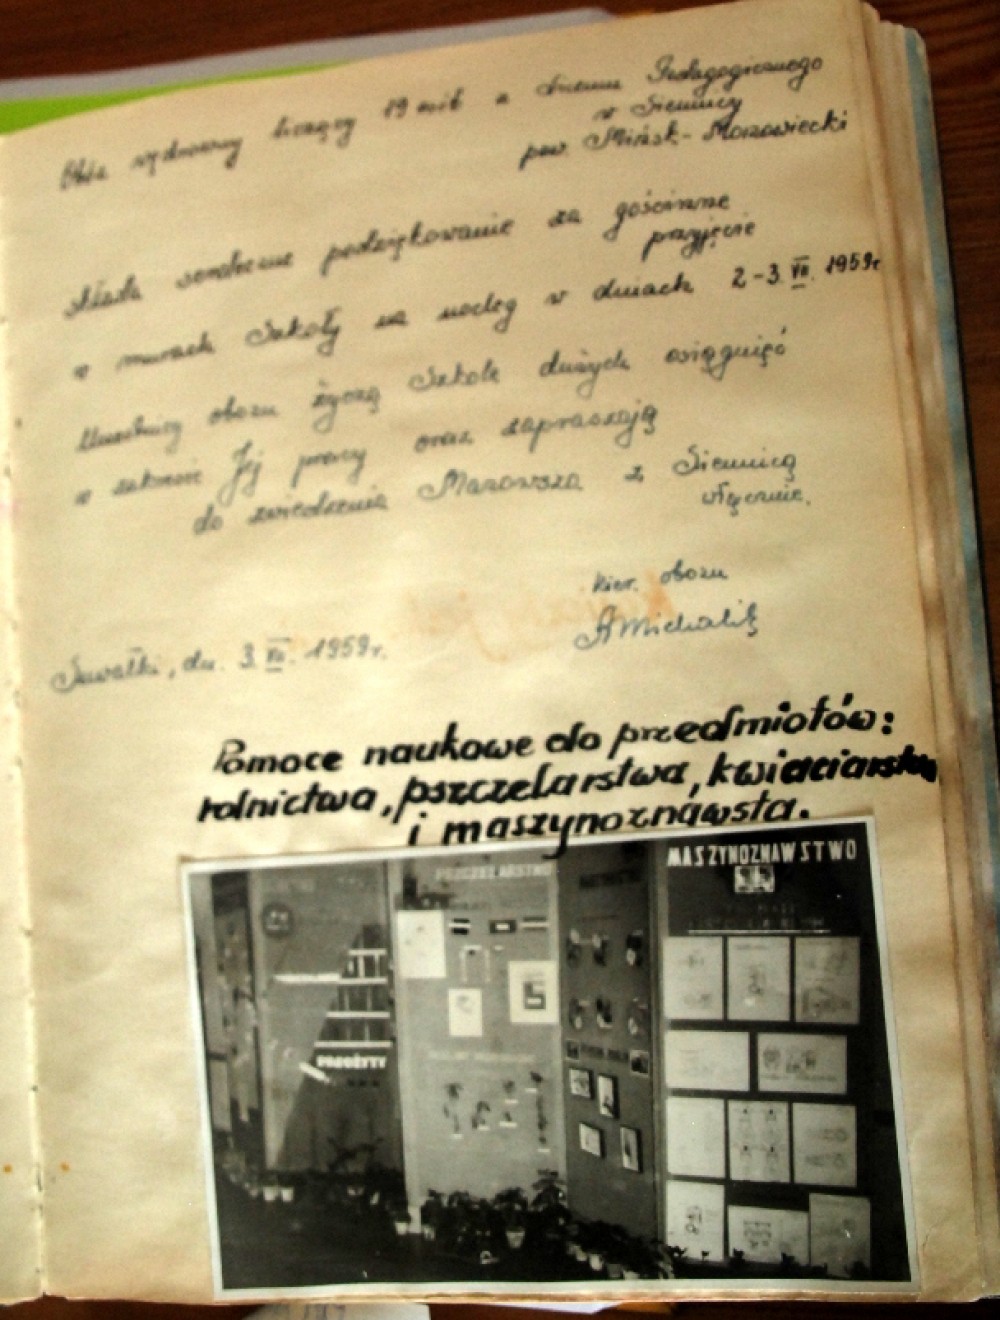 Obóz wędrowny liczący 19 osób z Liceum Pedagogicznego
w Siennicy
pow. Mińsk-Mazowiecki
składa serdeczne podziękowanie za gościnne
przyjęcie
w murach Szkoły na nocleg w dniach 2-3.VII.1959r
Uczestnicy obozu życzą Szkole dużych osiągnięć
w zakresie Jej pracy oraz zapraszają
do zwiedzenia Mazowsza z Siennicą
włącznie.
kier. obozu
AMichalik
Suwałki, dn. 3.VII.1959r.
Pomoce naukowe do przedmiotów:
rolnictwa, pszczelarstwa, kwiaciarstwa
i maszynoznawsta.
PSZCZELARSTWO
MASZYNOZNAWSTWO